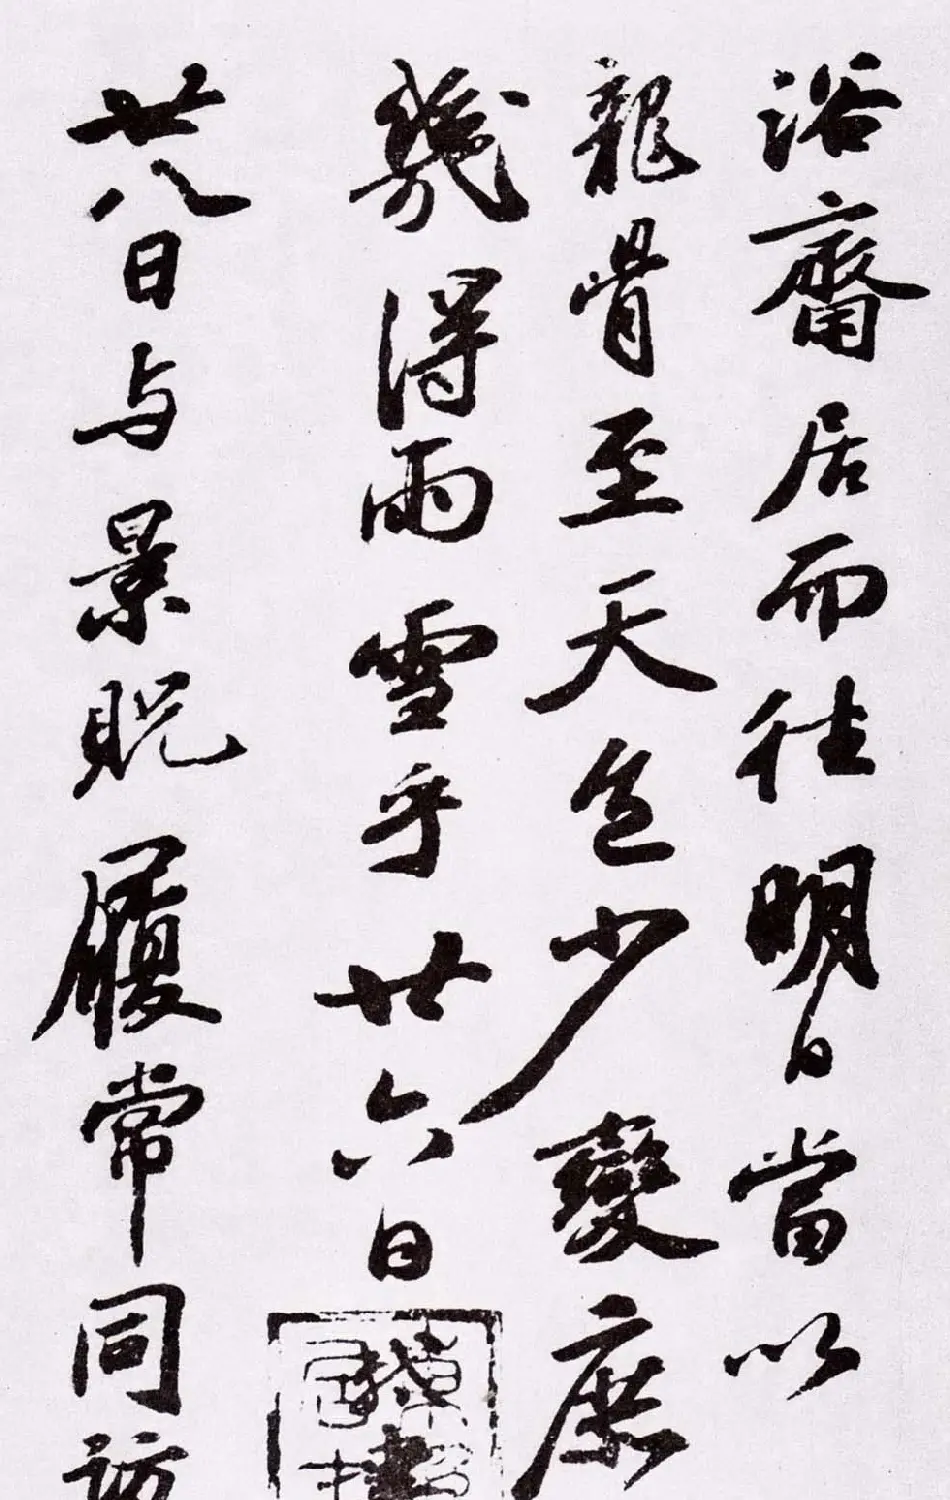 浴齋居而往明日當以
龍骨至天色少變庶
幾得雨雪乎廿六日
廿八日与景貺履常同訪